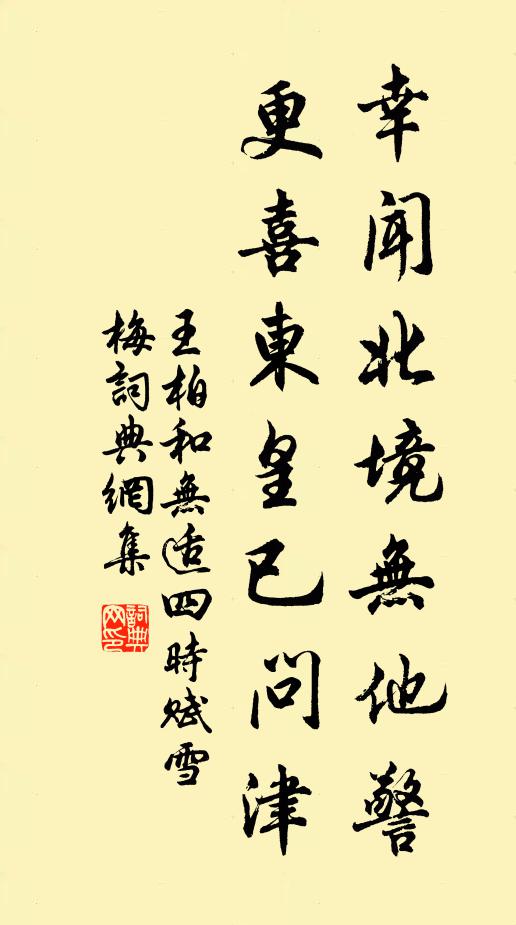 幸聞北境無他警
更喜東皇已問津
王柏和無适四時賦雪
梅詞典網集
詞典網印